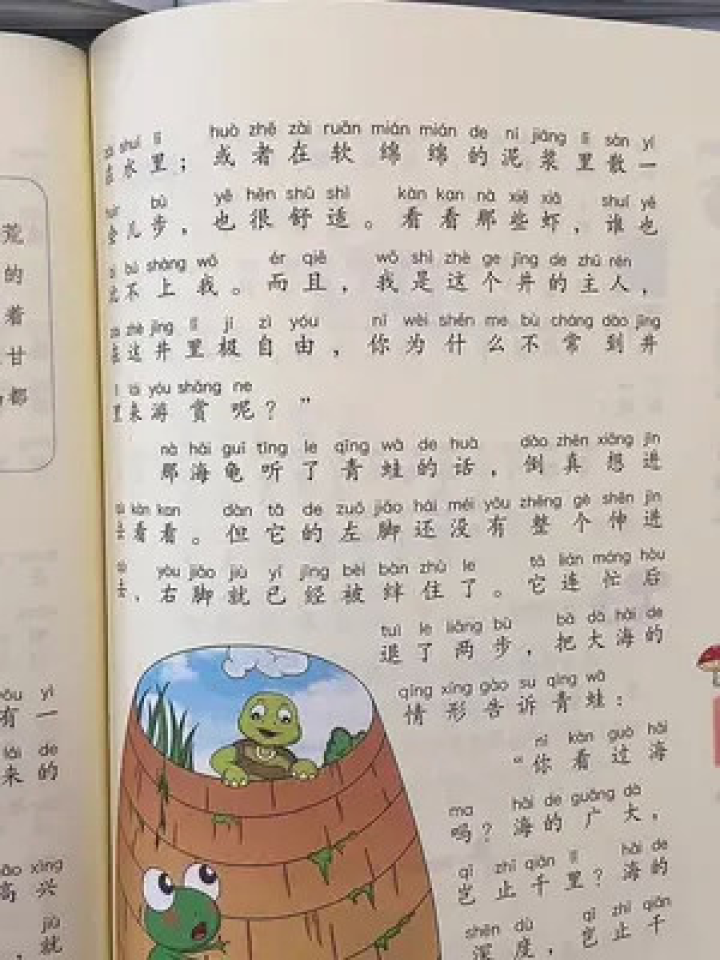 荒
的
着
甘
都
yǒu yì
有一
lái de
来的
gāo xìng
高兴
jiù
，就
shuǐ lǐ huò zhě zài ruǎn mián mián de ní jiāng lǐ sàn yí
在水里；或者在软绵绵的泥浆里散一
huìr bù yě hěn shū shì kàn kan nà xiē xiā shuí yě
会儿步，也很舒适。看看那些虾，谁也
bǐ bú shàng wǒ ér qiě wǒ shì zhè ge jǐng de zhǔ rén
比不上我。而且，我是这个井的主人，
zài zhè jǐng lǐ jí zì yóu nǐ wèi shén me bù cháng dào jǐng
在这井里极自由，你为什么不常到井
lǐ lái yóu shǎng ne
里来游赏呢？”
nà hǎi guī tīng le qīng wā de huà dào zhēn xiǎng jìn
那海龟听了青蛙的话，倒真想进
qù kàn kan dàn tā de zuǒ jiǎo hái méi yǒu zhěng gè shēn jìn
去看看。但它的左脚还没有整个伸进
qù yòu jiǎo jiù yǐ jīng bèi bàn zhù le tā lián máng hòu
去，右脚就已经被绊住了。它连忙后
tuì le liǎng bù bǎ dà hǎi de
退了两步，把大海的
qíng xíng gào su qīng wā
情形告诉青蛙：
nǐ kàn guò hǎi
“你看过海
ma hǎi de guǎng dà
吗？海的广大，
qǐ zhǐ qiān lǐ hǎi de
岂止千里？海的
shēn dù qǐ zhǐ qiān
深度，岂止千